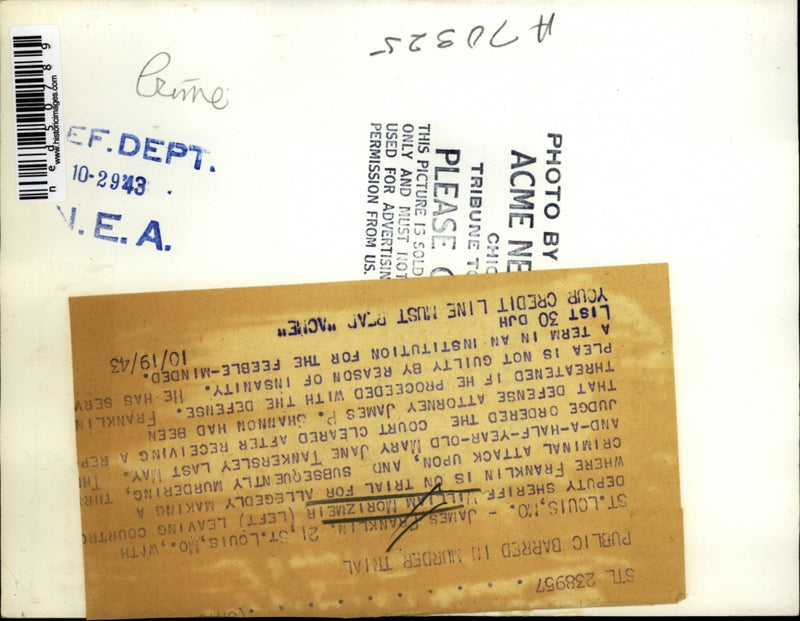 A70325
Crime
www.historicimages.com
ned50789
EF. DEPT.
10-29 43
N.E.A.
PHOTO BY
ACME NE
TRIBUNE TO
CHIC
PLEASE C
THIS PICTURE IS SOLD
ONLY AND MUST NOT
USED FOR ADVERTISIN
PERMISSION FROM US.
STL 238957
PUBLIC BARRED IN MURDER TRIAL
ST.LOUIS,MO. - JAMES FRANKLIN, 21, ST.LOUIS,MO., WITH
DEPUTY SHERIFF WILLIAM MORIZMEIR (LEFT) LEAVING COURTRO
WHERE FRANKLIN IS ON TRIAL FOR ALLEGEDLY MAKING A
CRIMINAL ATTACK UPON, AND SUBSEQUENTLY MURDERING, THR
AND-A-HALF-YEAR-OLD MARY JANE TANKERSLEY LAST MAY. TH
JUDGE ORDERED THE COURT CLEARED AFTER RECEIVING A REP
THAT DEFENSE ATTORNEY JAMES P. SHANNON HAD BEEN
THREATENED IF HE PROCEEDED WITH THE DEFENSE. FRANKLIN
PLEA IS NOT GUILTY BY REASON OF INSANITY. HE HAS SERV
A TERM IN AN INSTITUTION FOR THE FEEBLE-MINDED.
LIST 30 DJH 10/19/43
YOUR CREDIT LINE MUST READ "ACME"